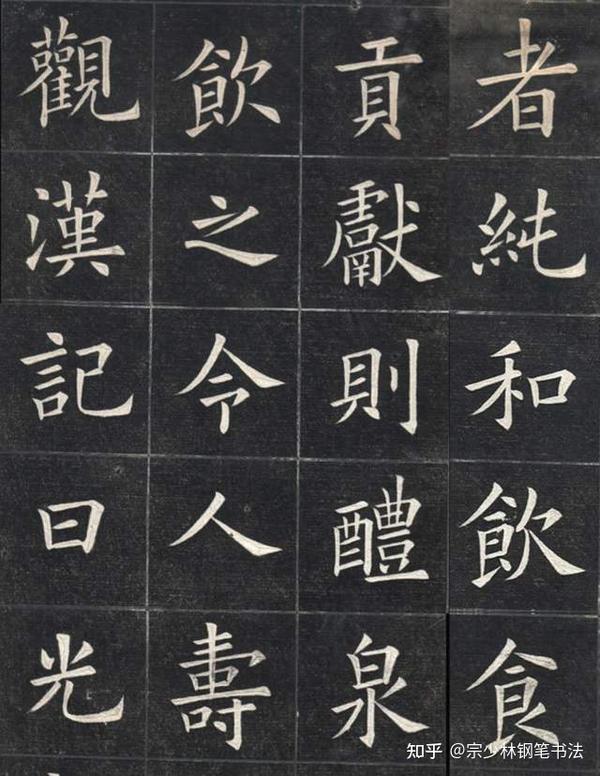 者純和飲食
貢獻則醴泉
飲之令人壽
觀漢記曰光
知乎 @宗少林钢笔书法